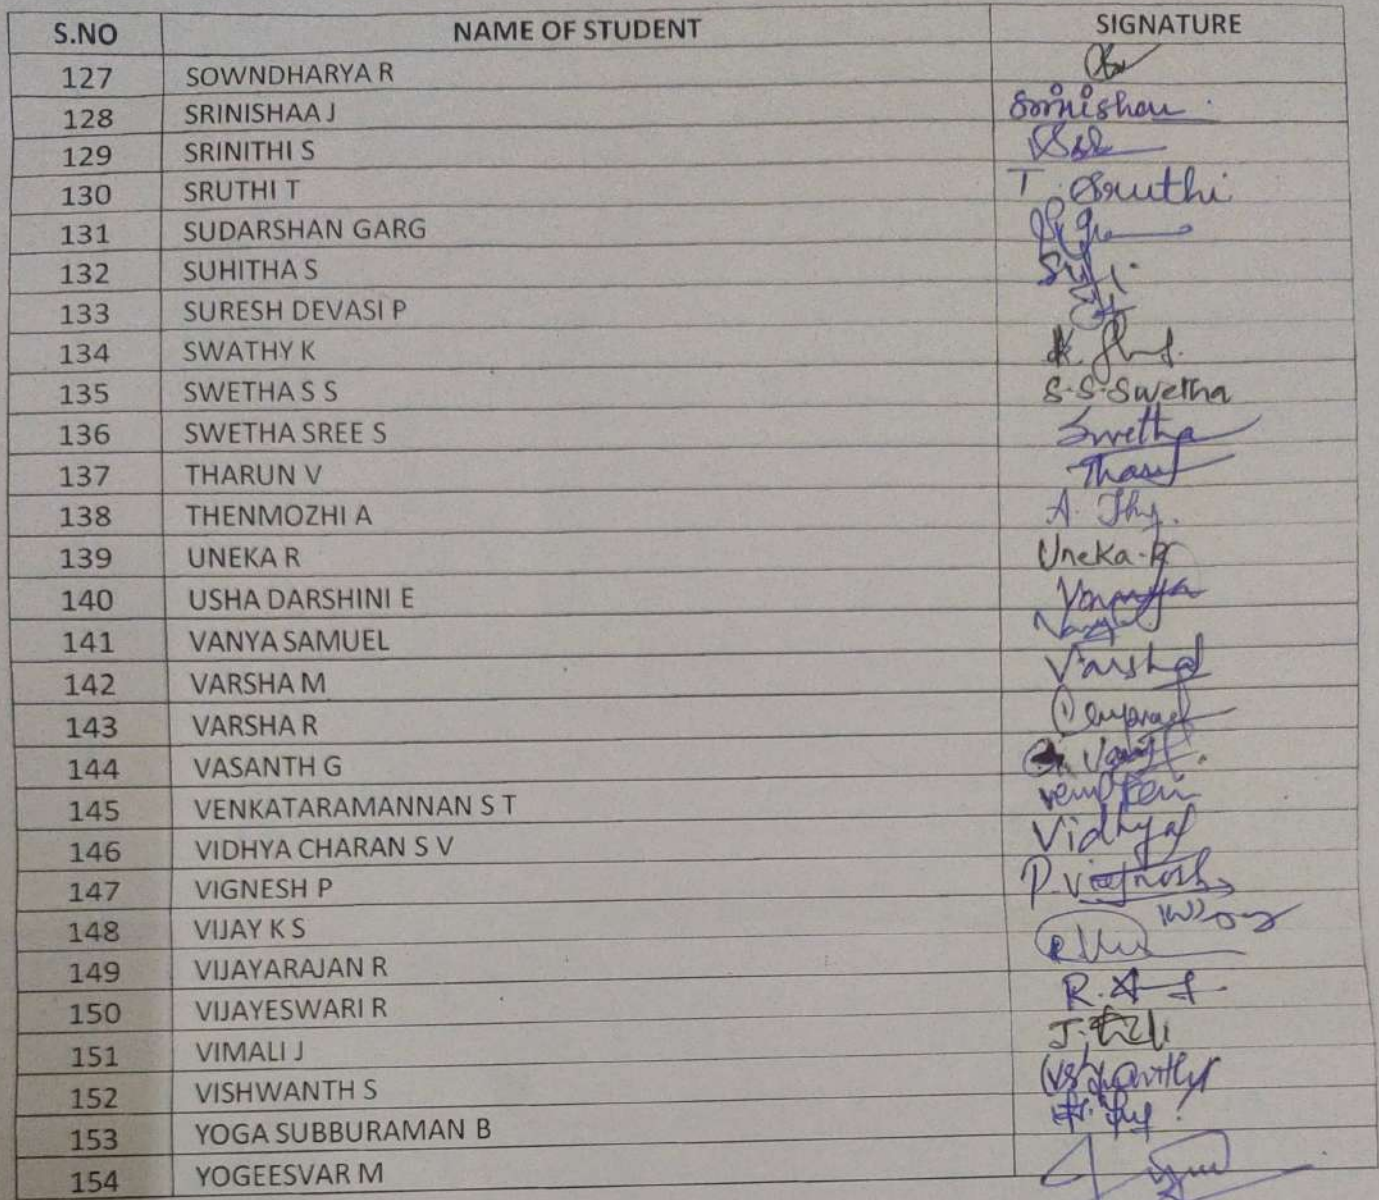 S.NO NAME OF STUDENT SIGNATURE
127 SOWNDHARYA R
128 SRINISHAA J
129 SRINITHI S
130 SRUTHI T T. Sruthi
131 SUDARSHAN GARG
132 SUHITHA S
133 SURESH DEVASI P
134 SWATHY K
135 SWETHA S S S.S.Swetha
136 SWETHA SREE S Swetha
137 THARUN V
138 THENMOZHI A
139 UNEKA R Uneka.R
140 USHA DARSHINI E
141 VANYA SAMUEL
142 VARSHA M Varsha
143 VARSHA R
144 VASANTH G
145 VENKATARAMANNAN S T
146 VIDHYA CHARAN S V Vidhya
147 VIGNESH P
148 VIJAY K S
149 VIJAYARAJAN R
150 VIJAYESWARI R
151 VIMALI J
152 VISHWANTH S
153 YOGA SUBBURAMAN B
154 YOGEESVAR M